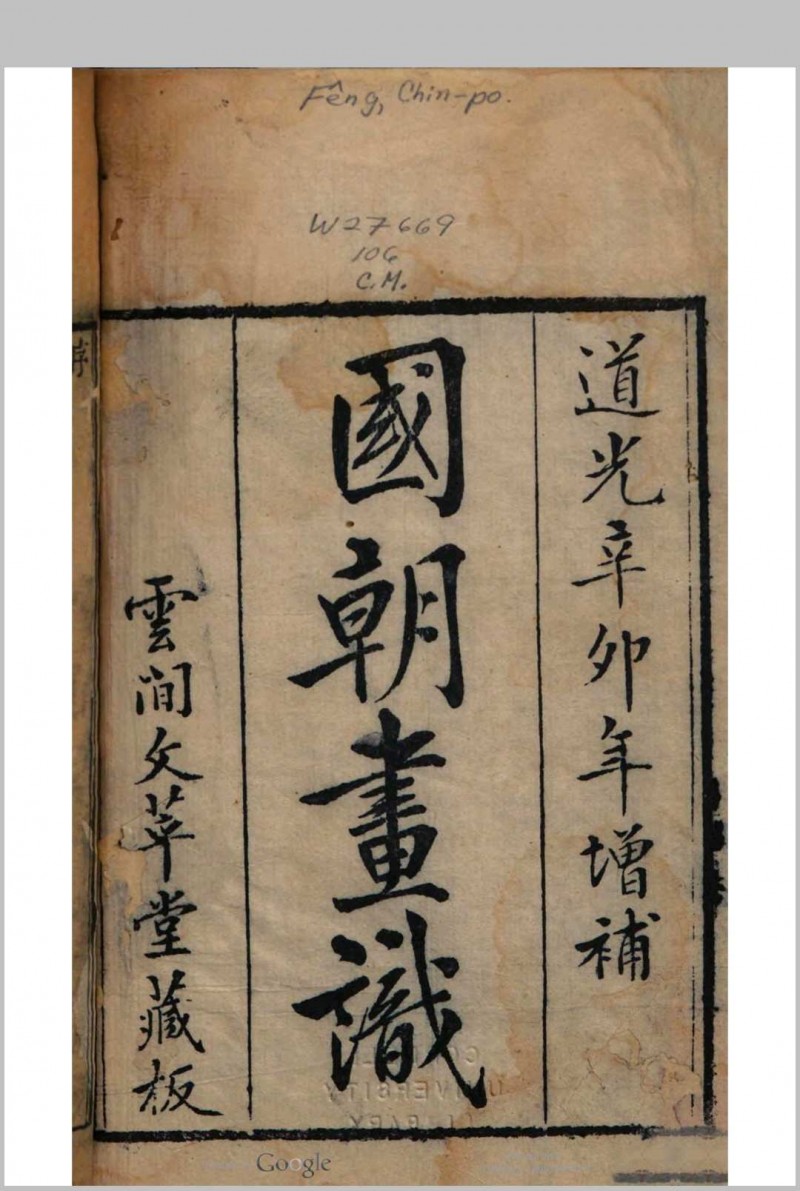 Fêng, Chin-po.
W27669
106
C.M.
道光辛卯年増補
國朝畫識
雲間文萃堂藏板
序
UNIVERSITY
LIBRARY
Google